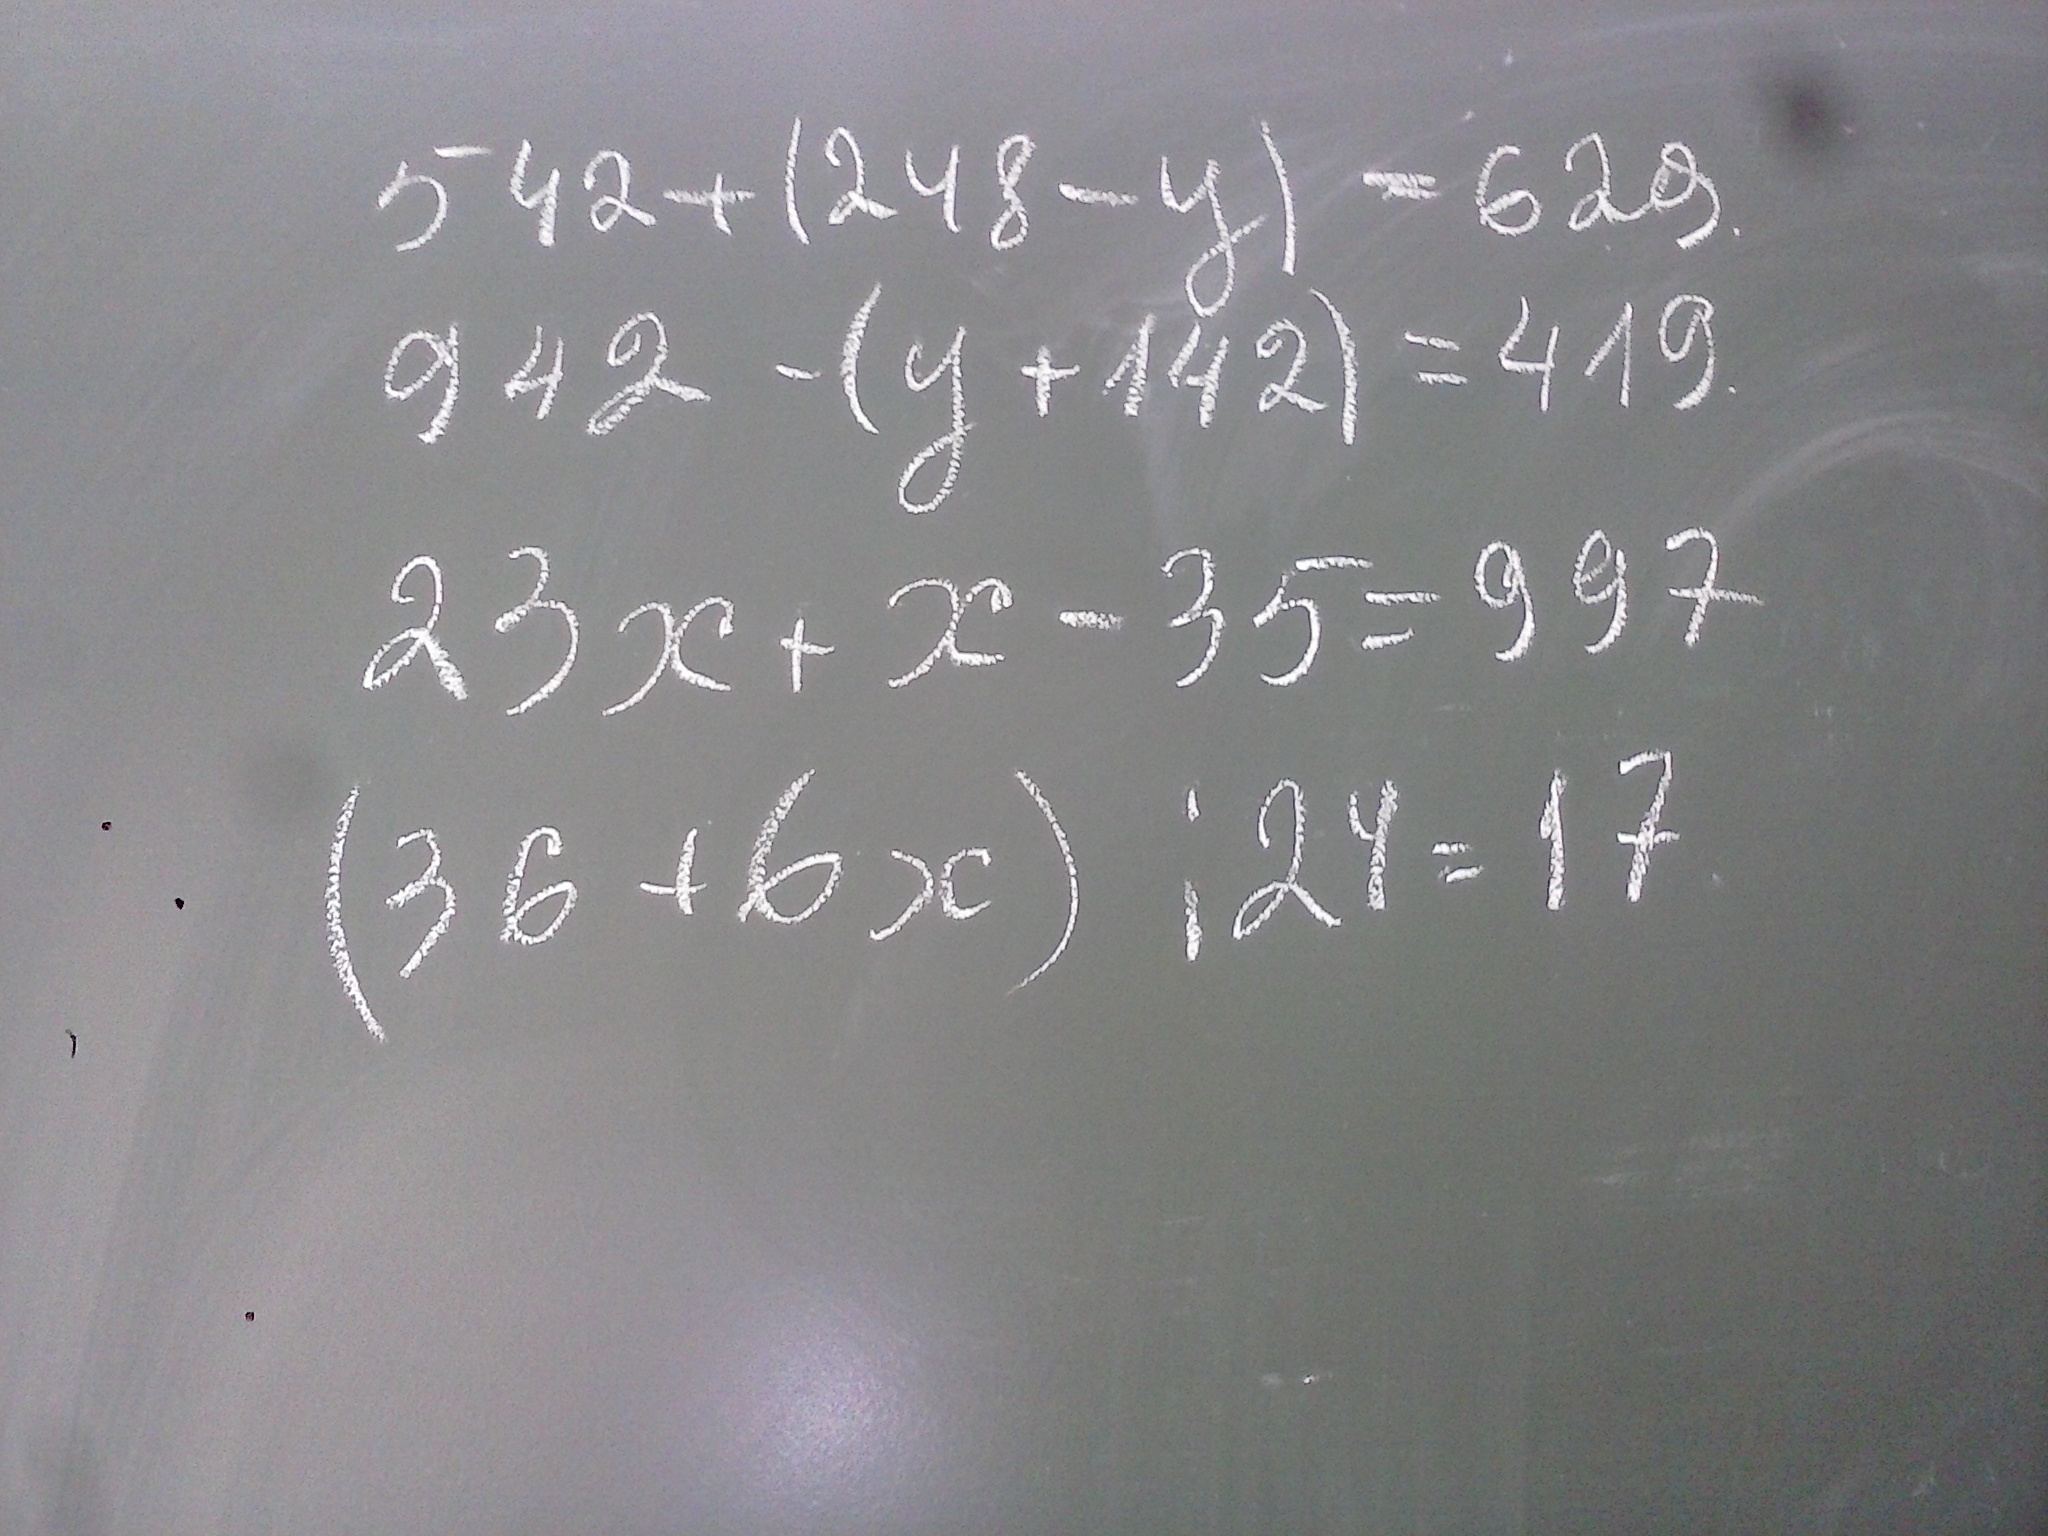 542+(248-y)=629.
942-(y+142)=419.
23x+x-35=997
(36+6x):24=17